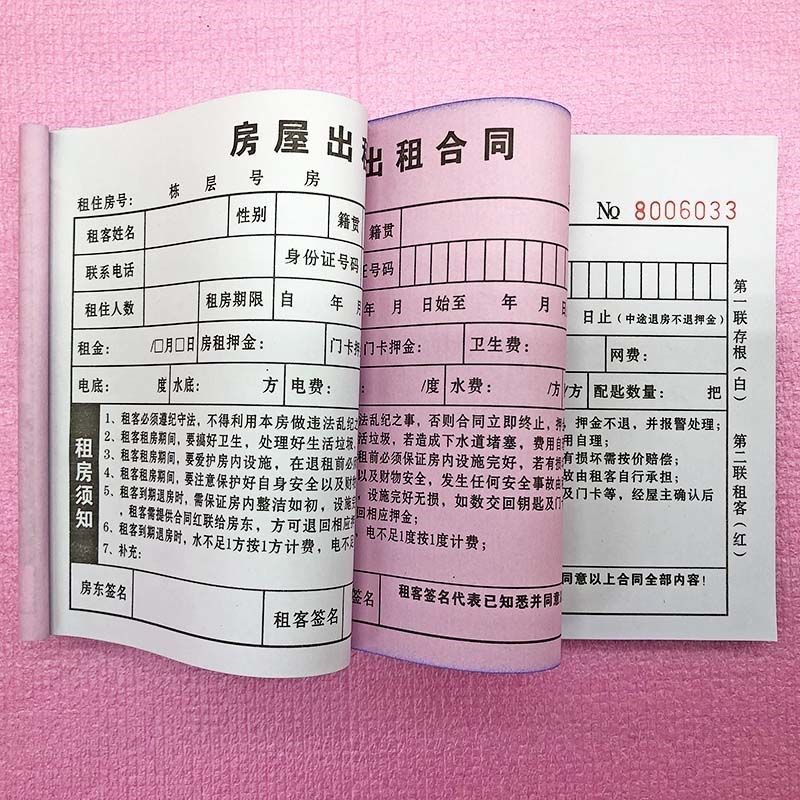 房屋出租
出租合同
租住房号： 栋 层 号 房
№ 8006033
租客姓名 性别 籍贯
籍贯
联系电话 身份证号码
证号码
租住人数 租房期限 自 年 月
年 月 日始至 年 月 日
日止（中途退房不退押金）
租金： /□月□日 房租押金： 门卡押
门卡押金： 卫生费：
网费：
电底： 度 水底： 方 电费：
/度 水费： /方
/方 配匙数量： 把
租房须知
1、租客必须遵纪守法，不得利用本房做违法乱纪之
2、租客租房期间，要搞好卫生，处理好生活垃圾
3、租客租房期间，要爱护房内设施，在退租前必
4、租客租房期间，要注意保护好自身安全以及财
5、租客到期退房时，需保证房内整洁如初，设施
，租客需提供合同红联给房东，方可退回相应押
6、租客到期退房时，水不足1方按1方计费，电不足
7、补充：
法乱纪之事，否则合同立即终止，押
活垃圾，若造成下水道堵塞，费用自
前必须保证房内设施完好，若有损
以及财物安全，发生任何安全事故由
，设施完好无损，如数交回钥匙及门
回相应押金；
电不足1度按1度计费；
押金不退，并报警处理；
用自理；
有损坏需按价赔偿；
故由租客自行承担；
及门卡等，经屋主确认后
房东签名 租客签名
签名 租客签名代表已知悉并同意以
同意以上合同全部内容！
第一联存根（白）
第二联租客（红）